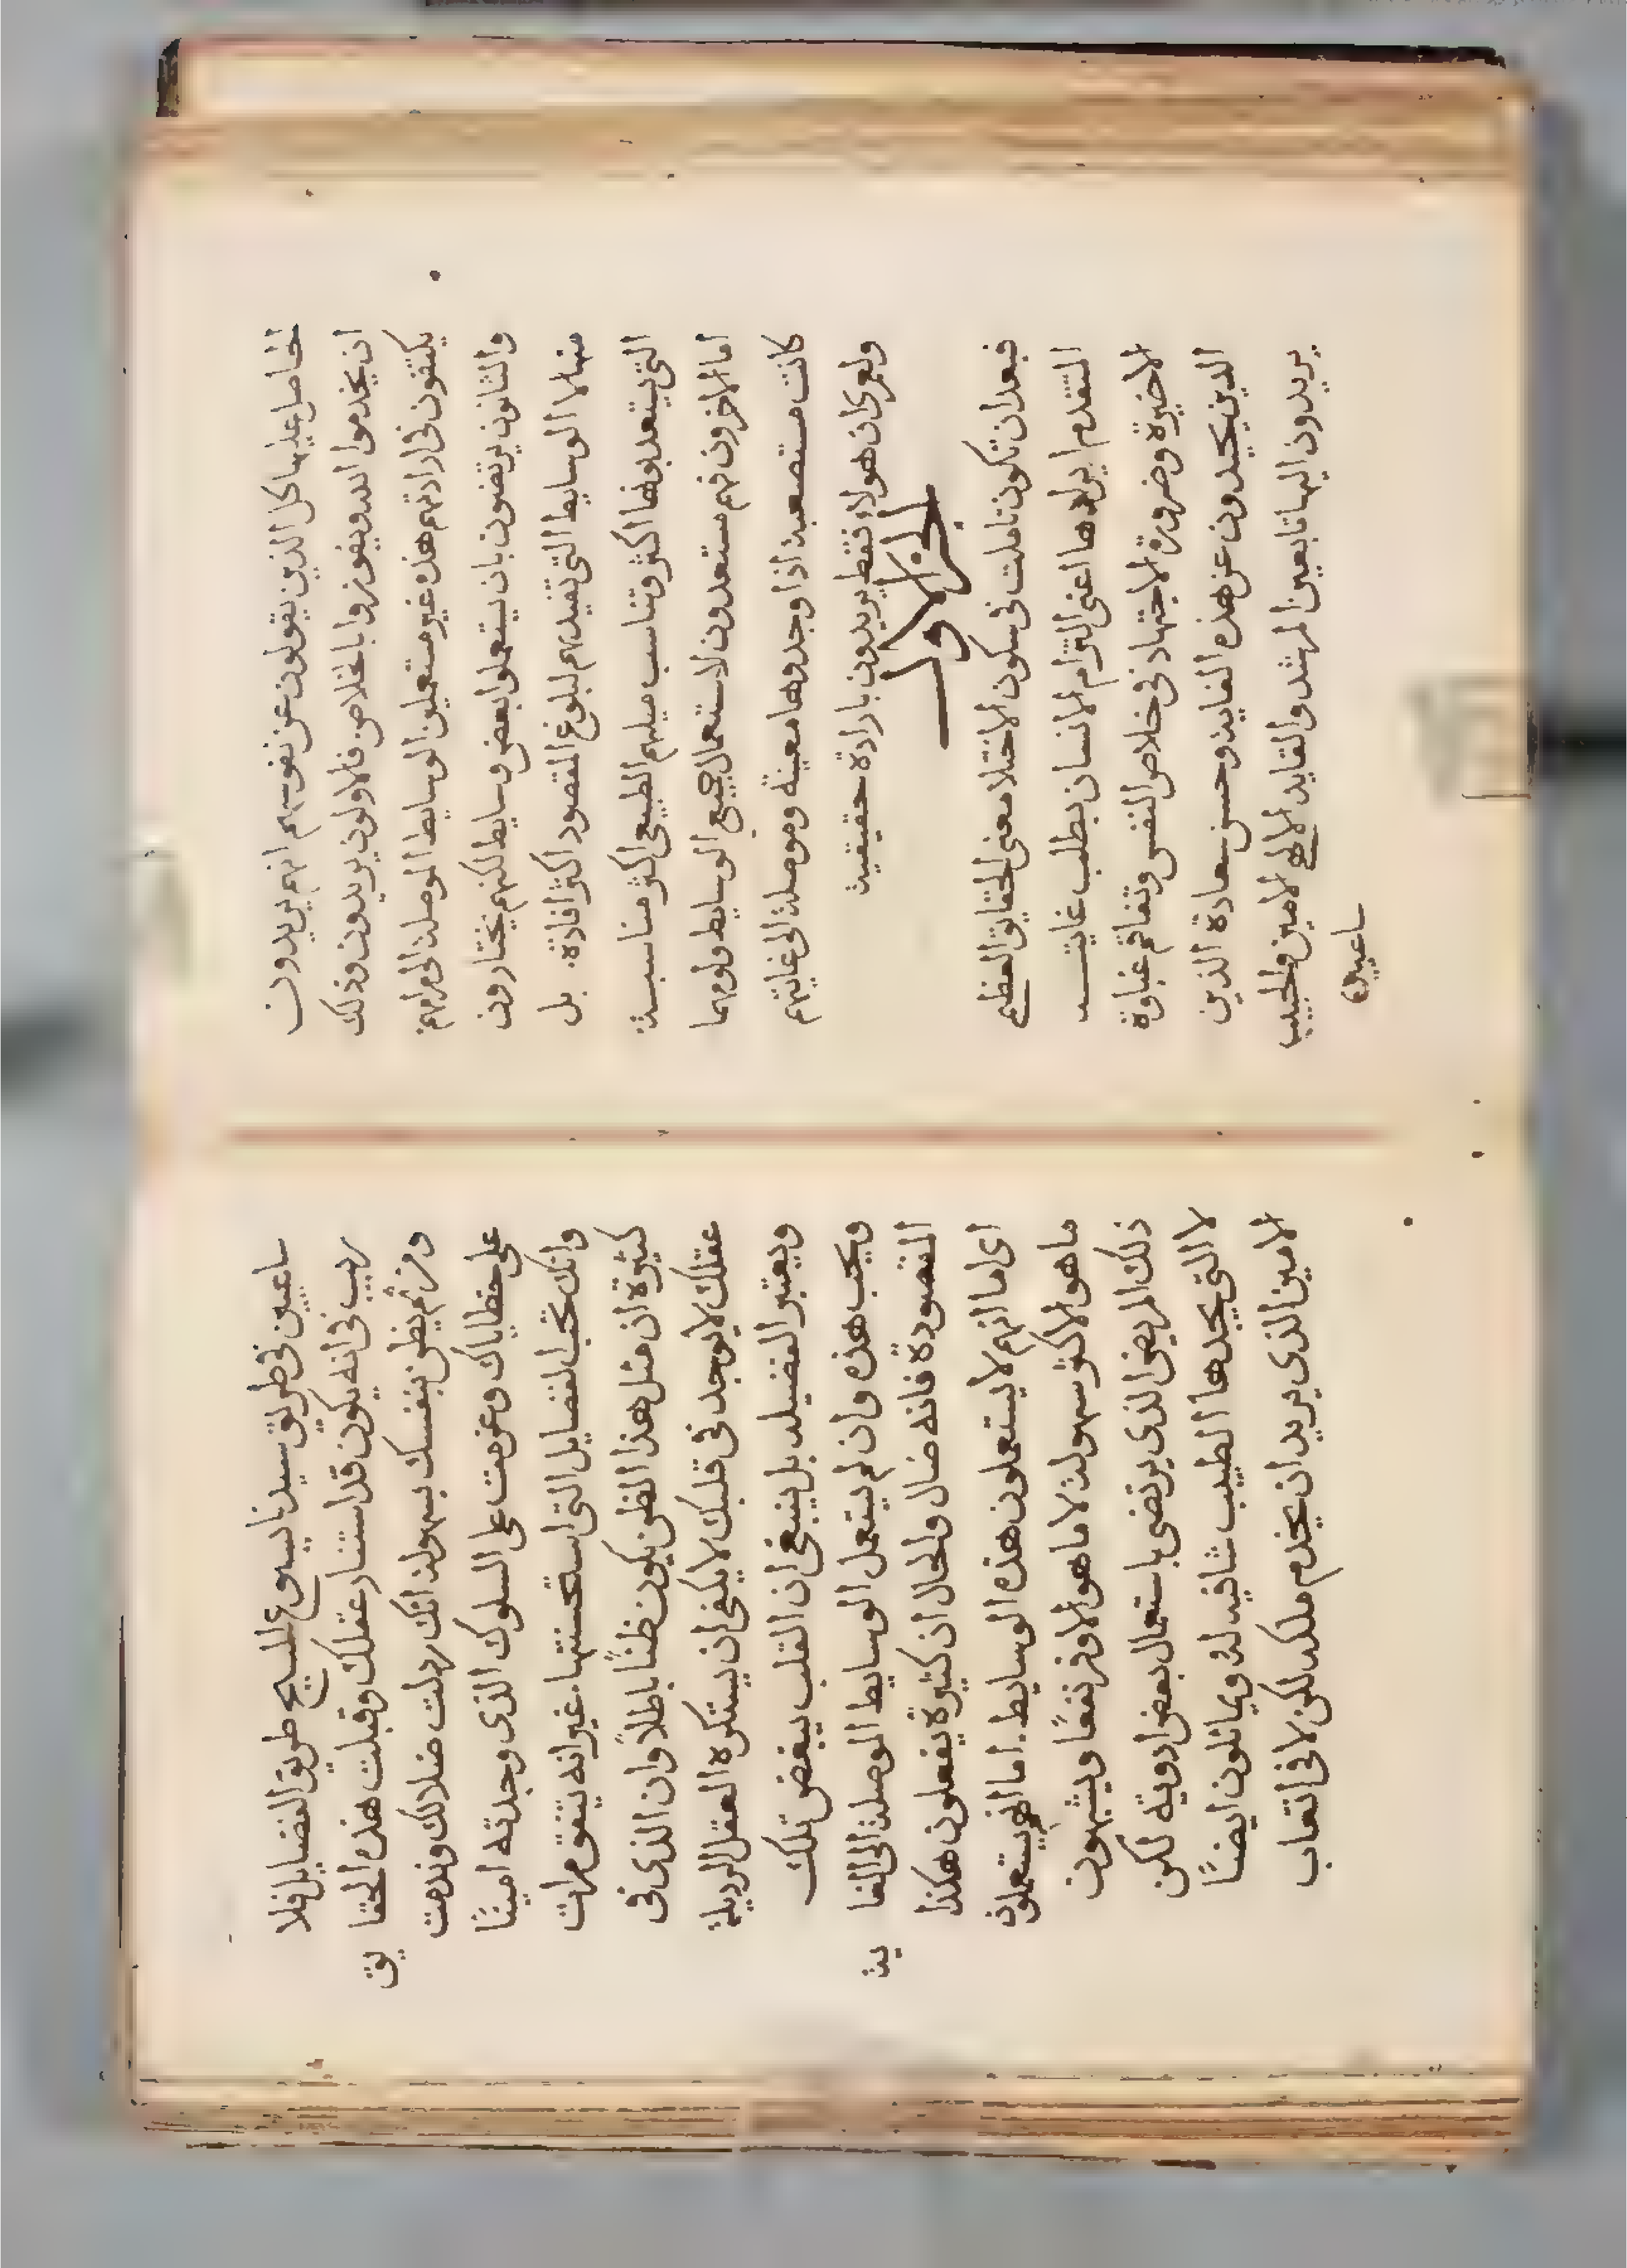 الحاصل عليها كل الذين يقولون عن نفوسهم انهم يريدون
ان يخدموا الله ويفوزوا باخلاص فالاولون يريدون وذلك
يكتفون في ارادتهم هذه غير مستعملين الوسايط الموصلة الى مرامهم
والثانون يرتضون بان يستعملوا بعض وسايط لكنهم يختارون
منها لا الوسايط التي تفيدهم لبلوغ المقصود اكثر افادة. بل
التي يستعدبونها اكثر وتناسب ميلهم الطبيعي اكثر مناسبة
اما الاخرون فهم مستعدون لاستعمال جميع الوسايط ولو مهما
كانت مستصعبة اذا وجدوها معينة وموصلة الى غايتهم
ولعمري ان هولاء فقط يريدون بارادة حقيقية
الجزء الاول
فبعد ان تكون تاملت في سكون الاختلا معنى الحقايق العظيم
المتقدم ايرادها اعني التزام الانسان بطلب غايته
الاخيرة وضرورة الاجتهاد في خلاص النفس وتفاقم غباوة
الذين يحيدون عن هذه الغاية وحسن سعادة الذين
يريدون اليها تابعين المرشد والقايد الالهي الامين والحبيب
ساعيين
ساعيين في طريق سيدنا يسوع المسيح طريق الفضايل فلا
ريب في انه يكون قد استنار عقلك وقبلت هذه الحقايق
ومن ثم يظن بنفسك بسهولة انك رذلت ضلالك وندمت
على خطاياك وعزمت على السلوك الذي وجدته امينًا
وانك تحب الفضايل التي استحسنتها. غير انه يتفق مرات
كثيرة ان مثل هذا الظن يكون ظنًا باطلاً وان الذي في
عقلك لا يوجد في قلبك لا يكفي ان يستكره العقل الرذيلة
ويعتبر الفضيلة بل ينبغي ان القلب يبغض تلك
ويحب هذه وان لم يستعمل الوسايط الموصلة الى الغاية
المقصودة فانه ضال والحال ان كثيرة يفعلون هكذا
اي اما انهم لا يستعملون هذه الوسايط. اما انهم يستعملون
ما هو الاكثر سهولة لا ما هو الاوفر نفعًا ويشبهون
ذلك المريض الذي يرتضي باستعمال بعض ادوية لكن
لا التي يجدها الطبيب شافية له ويماثلون ايضًا
الامين الذي يريد ان يخدم ملكه لكن لا في اتعاب